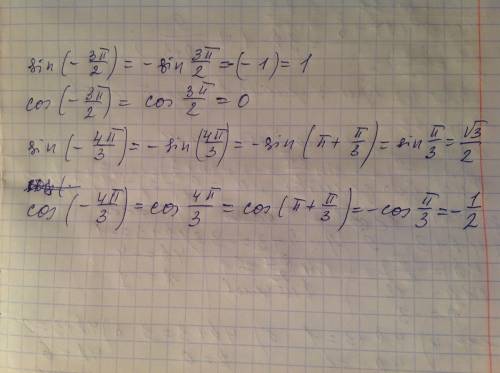 sin(-3π/2) = -sin 3π/2 = -(-1) = 1
cos(-3π/2) = cos 3π/2 = 0
sin(-4π/3) = -sin(4π/3) = -sin(π+π/3) = sin π/3 = √3/2
cos(-4π/3) = cos 4π/3 = cos(π+π/3) = -cos π/3 = -1/2